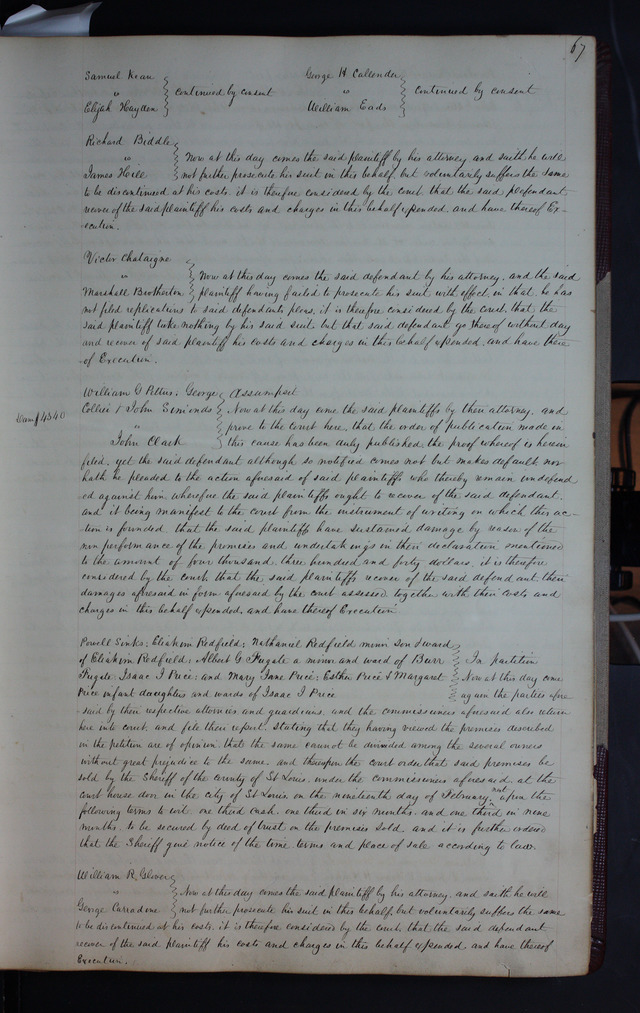 67
Samuel Kean
" } continued by consent
Elijah Hayden
George H Callender
" } continued by consent
William Eads
Richard Biddle
" } Now at this day comes the said plaintiff by his attorney and saith he will
James Hill } not further prosecute his suit in this behalf but voluntarily suffers the same
to be discontinued at his costs. it is therefore considered by the court that the said defendant
recover of the said plaintiff his costs and charges in this behalf expended. and have thereof Ex-
ecution.
Victor Chataigne
" } Now at this day comes the said defendant by his attorney. and the said
Marshall Brotherton } plaintiff having failed to prosecute his suit with effect, in that he has
not filed replications to said defendants pleas. it is therefore considered by the court that the
said plaintiff take nothing by his said suit. but that said defendant go thereof without day
and recover of said plaintiff his costs and charges in this behalf expended. and have there
of Execution.
William G Pettus; George } Assumpsit
Collier & John Simonds } Now at this day come the said plaintiffs by their attorney. and
Dam $4340
" } prove to the Court here, that the order of publication made in
John Clark } this cause has been duly published the proof whereof is herein
filed. yet the said defendant although so notified comes not but makes default, nor
hath he pleaded to the action aforesaid of said plaintiffs who thereby remain undefend
ed against him wherefore the said plaintiffs ought to recover of the said defendant.
and it being manifest to the court from the instrument of writing on which this ac-
tion is founded. that the said plaintiffs have sustained damage by reason of the
non performance of the promises and undertakings in their declaration mentioned
to the amount of four thousand three hundred and forty dollars. it is therefore
considered by the court, that the said plaintiffs recover of the said defendant their
damages aforesaid in form aforesaid by the court assessed together with their costs and
charges in this behalf expended. and have thereof Execution
Powell Sinks; Eliakim Redfield; Nathaniel Redfield minor son & ward
of Eliakim Redfield; Albert G Fugate a minor and ward of Burr } In partition
Fugate Isaac J Price; and Mary Jane Price; Esther Price & Margaret } Now at this day come
Price infant daughters and wards of Isaac J Price } again the parties afore
said by their respective attornies and guardians. and the commissioners aforesaid also return
here into court. and file their report. stating that they having viewed the premises described
in the petition are of opinion. that the same cannot be divided among the several owners
without great prejudice to the same. and thereupon the court order that said premises be
sold by the Sheriff of the county of St Louis. under the commissioners aforesaid. at the
court house door in the city of St Louis on the nineteenth day of February next upon the
following terms to wit. one third cash. one third in six months. and one third in nine
months. to be secured by deed of trust on the premises sold. and it is further ordered
that the Sheriff give notice of the time terms and place of sale according to law.
William R Glover
" } Now at this day comes the said plaintiff by his attorney. and saith he will
George Carradine } not further prosecute his suit in this behalf, but voluntarily suffers the same
to be discontinued at his costs. it is therefore considered by the court, that the said defendant
recover of the said plaintiff his costs and charges in this behalf expended. and have thereof
Execution.